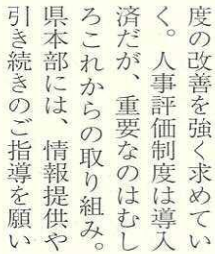 度の改善を強く求めてい
く。人事評価制度は導入
済だが、重要なのはむし
ろこれからの取り組み。
県本部には、情報提供や
引き続きのご指導を願い